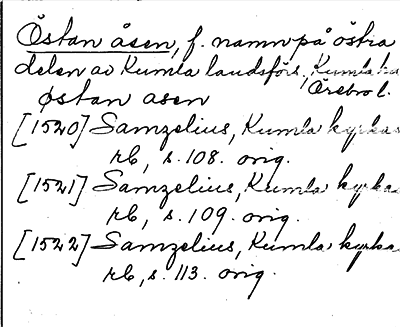 Östan åsen, f. namn på östra
delen av Kumla landsförs., Kumla
Örebro l.
østan asen
[1520] Samzelius, Kumla kyrkas
rb, s. 108. orig.
[1521] Samzelius, Kumla kyrkas
rb, s. 109. orig.
[1522] Samzelius, Kumla kyrka
rb, s. 113. orig.